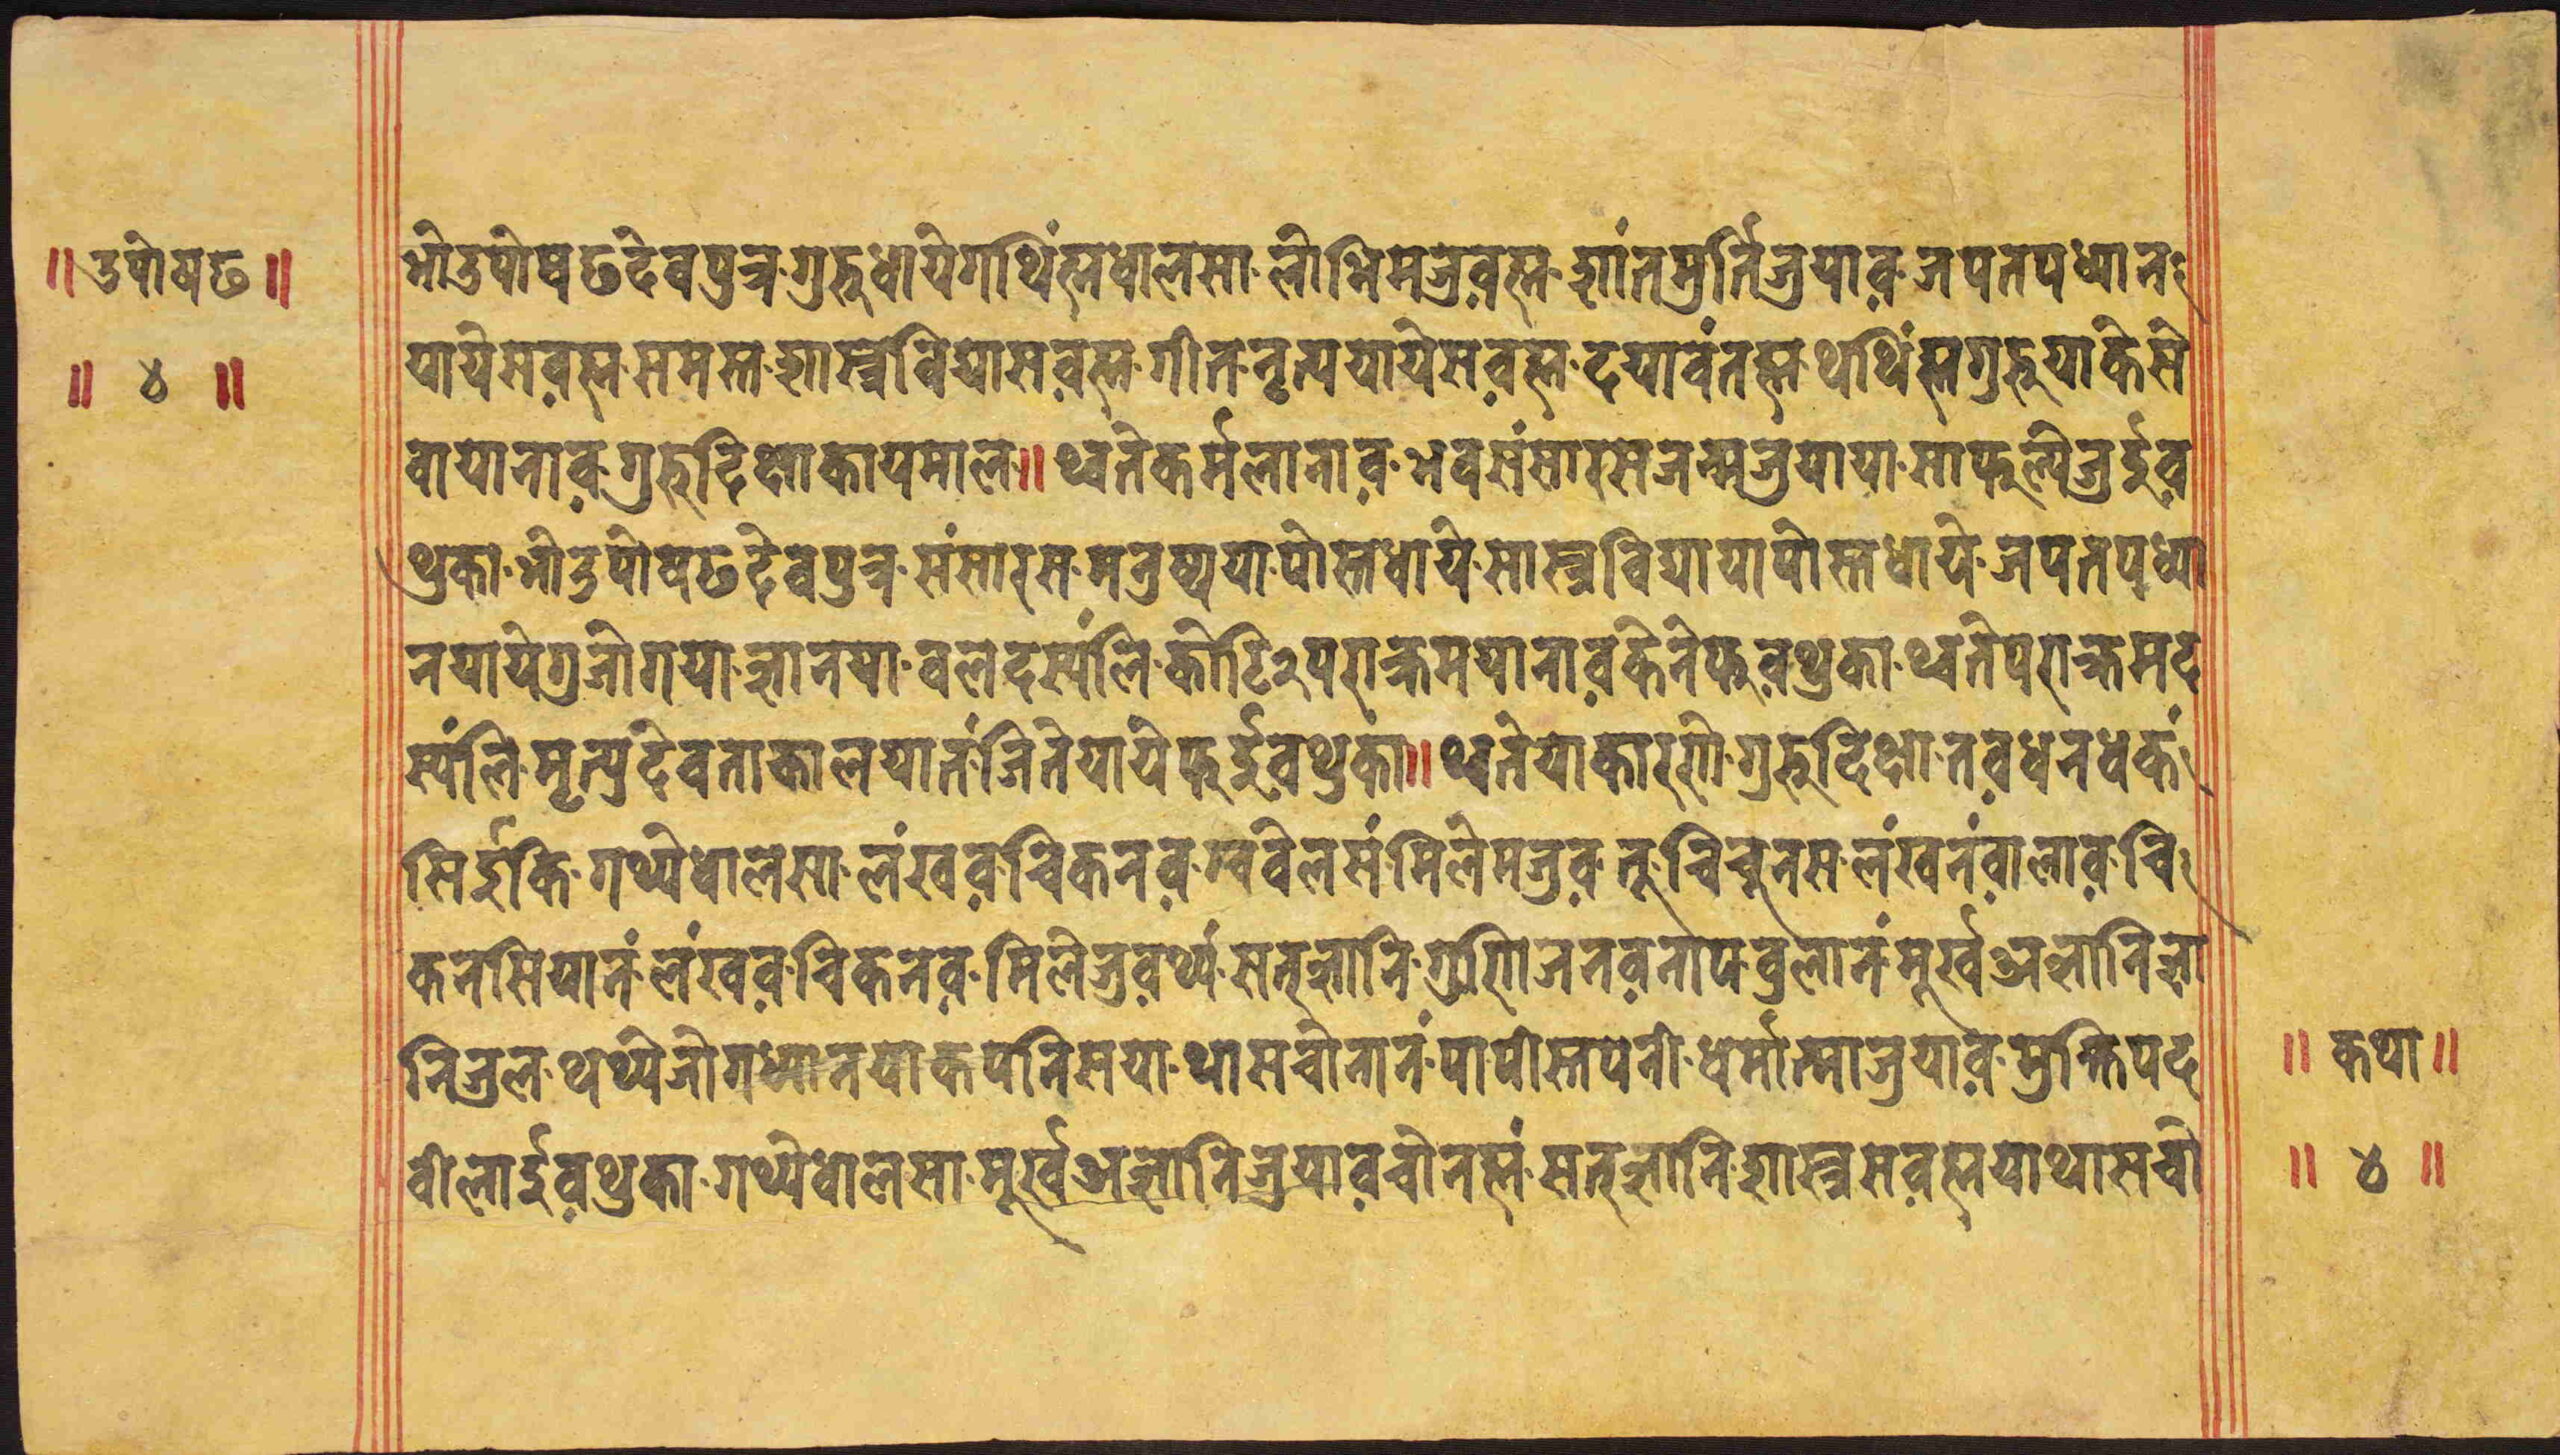 ॥ उपोषढ ॥
॥ ४ ॥
भो उपोषढ देवपुत्र·गुरुधायेगथिंह्मधालसा·लोभिमजुव़ह्म·शांतमुर्तिजुयाव़·जपतपध्यान
यायेसव़ह्म·समस्त·शास्त्रविद्यासव़ह्म·गीत·नृत्ययायेसव़ह्म·दयावंतह्म·थथिंह्मगुरुयाकेसे
वायानाव़·गुरुदिक्षाकायमाल॥थ्वतेकर्मलानाव़·भवसंसारसजन्मजुयाया·साफुल्यजुईव़
थुका·भोउपोषढदेवपुत्र·संसारस·मनुष्यया·पोस्तधाये·सास्त्रविद्यायापोस्तधाये·जपतपध्या
नयायेगुजोगया·ज्ञानया·वलदस्यंलि·कोटि२पराक्रमयानाव़केनेफुव़थुका·थ्वतेपराक्रमद
स्यंलि·मृत्युदेवताकालयात·जितेयायेफुईव़थुकां॥थ्वतेयाकारणे·गुरुदिक्षा·नव़धनधकं
सिईकि·गथ्येधालसा·लंखव़·चिकनव़·ग्ववेलसं·मिलेमजुव़·तू·चिचूनस·लंखनंवालाव़·चि
कनसियानं·लंखव़·चिकनव़·मिलेजुव़थ्यं·सत्ज्ञानि·गुणिजनव़नाप·वुलानं·मूर्खअज्ञानिज्ञा
निजुल·थथ्येजोगध्यानयाकपनिसया·थासचोनानं·पापीस्तपनी·धर्मात्माजुयाव़·मुक्तिपद
वीलाईव़थुका·गथ्येधालसा·मूर्खअज्ञानिजुयावचोनह्मं·सत्ज्ञानि·शास्त्रसव़ह्मयाथासचो
॥ कथा ॥
॥ ४ ॥